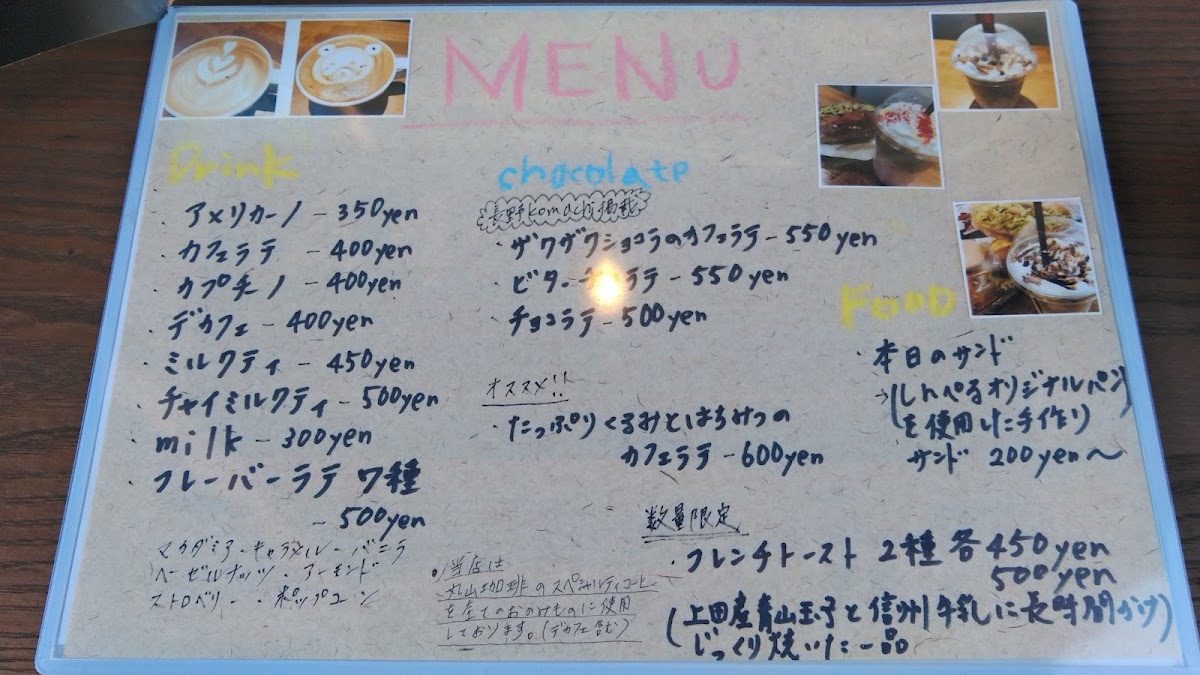 MENU
Drink
・アメリカーノ － 350yen
・カフェラテ － 400yen
・カプチーノ － 400yen
・デカフェ － 400yen
・ミルクティ － 450yen
・チャイミルクティ － 500yen
・milk － 300yen
・フレーバーラテ 7種
－ 500yen
マカダミア・キャラメル・バニラ
ヘーゼルナッツ・アーモンド
ストロベリー・ポップコーン
chocolate
長野komachi掲載
・ザクザクショコラのカフェラテ － 550yen
・ビター ラテ － 550yen
・チョコラテ － 500yen
オススメ!!
・たっぷりくるみとはちみつの
カフェラテ － 600yen
・当店は
丸山珈琲のスペシャルティコーヒー
を全てのおのみものに使用
しております。(デカフェ含む)
FOOD
・本日のサンド
→しんぺるオリジナルパン
を使用した手作り
サンド 200yen～
数量限定
・フレンチトースト 2種 各450yen
500yen
(上田産青山玉子と信州牛乳に長時間かけ)
じっくり焼いた一品